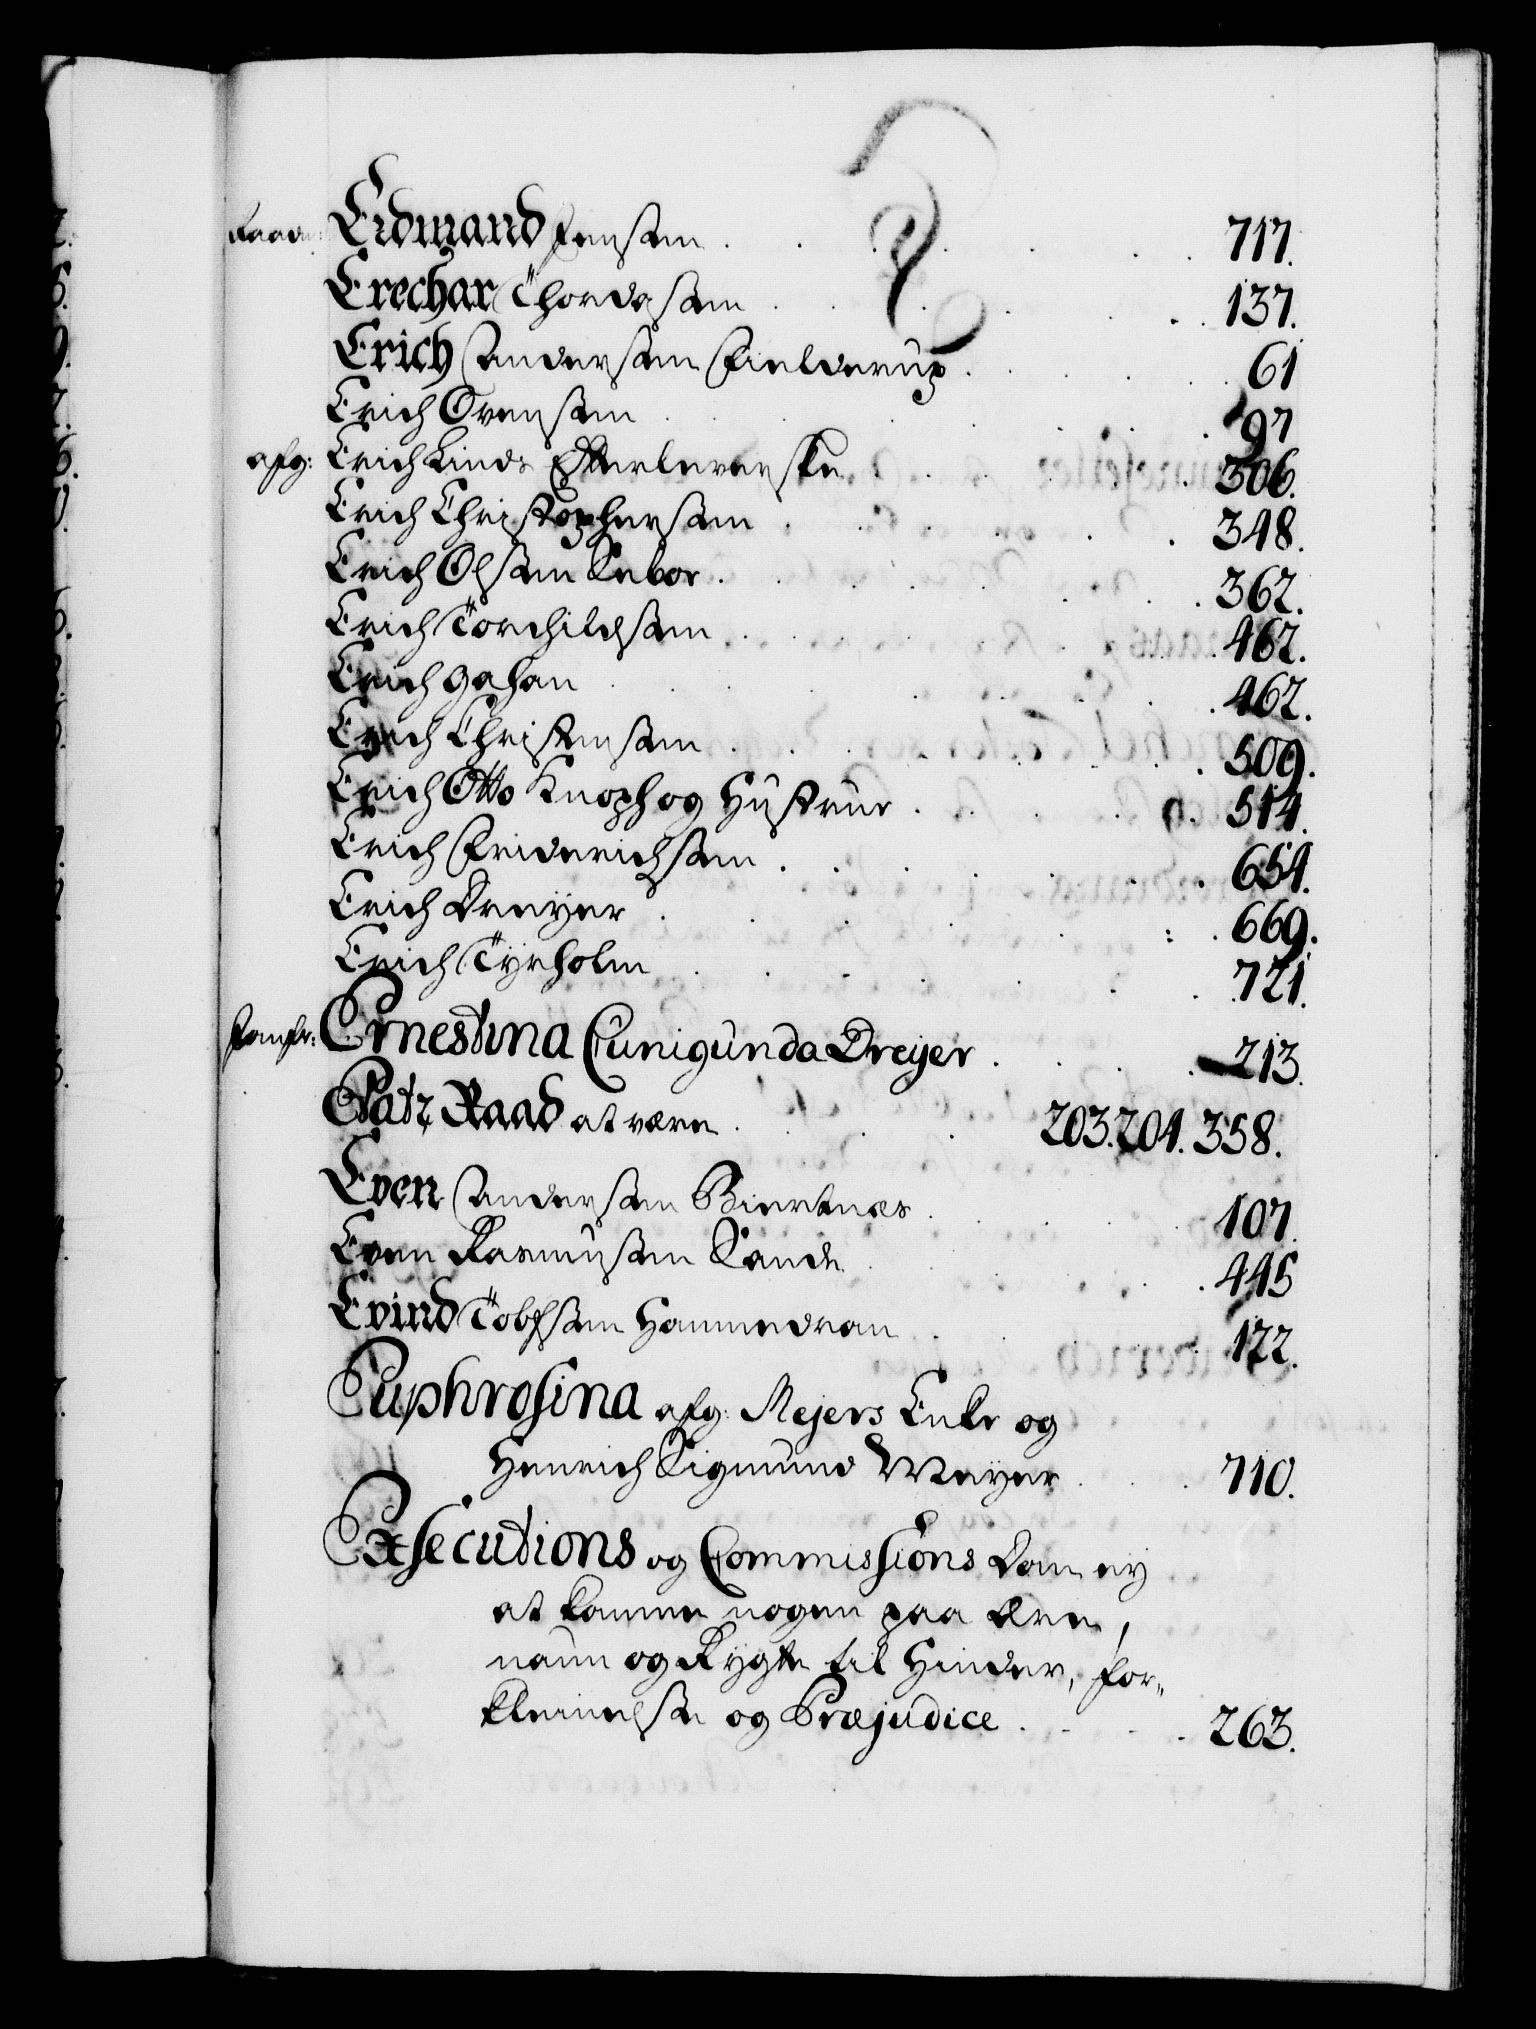 E
Raadm: Erdmand Jensøn 717.
Erechar Thordesøn 137.
Erich Andersøn Fielderup 61
Erich Svensøn 97
afg: Erich Linds Efterleverske 306.
Erich Christophersøn 348.
Erich Olsøn Seboe 362.
Erich Torchildsøn 462.
Erich Gahan 462.
Erich Christensøn 509.
Erich Otto Knoph og Hustrue 514.
Erich Friderichsøn 654.
Erich Dreyer 669.
Erich Tyrholm 721.
Jomfr: Ernestina Cunigunda Dreyer 213.
Etatz Raad at være 203. 204. 358.
Even Andersøn Biertnæs 107.
Even Rasmusøn Sande 445
Evind Tolfsøn Hammedran 122.
Euphrosina afg: Mejers Enke og
Henrich Sigmund Meyer 710.
Exsecutions og Commissions Dom ey
at komme nogen paa Ære,
naun og Rygte til Hinder, for„
kleinelse og Præjudice 263.